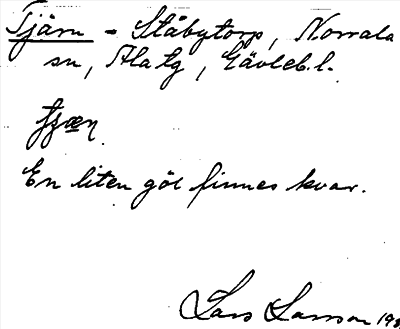 Tjärn - Ståbytorp, Norrala
sn, Ala tg, Gävleb.l.
En liten göl finnes kvar.
Lars Larsson